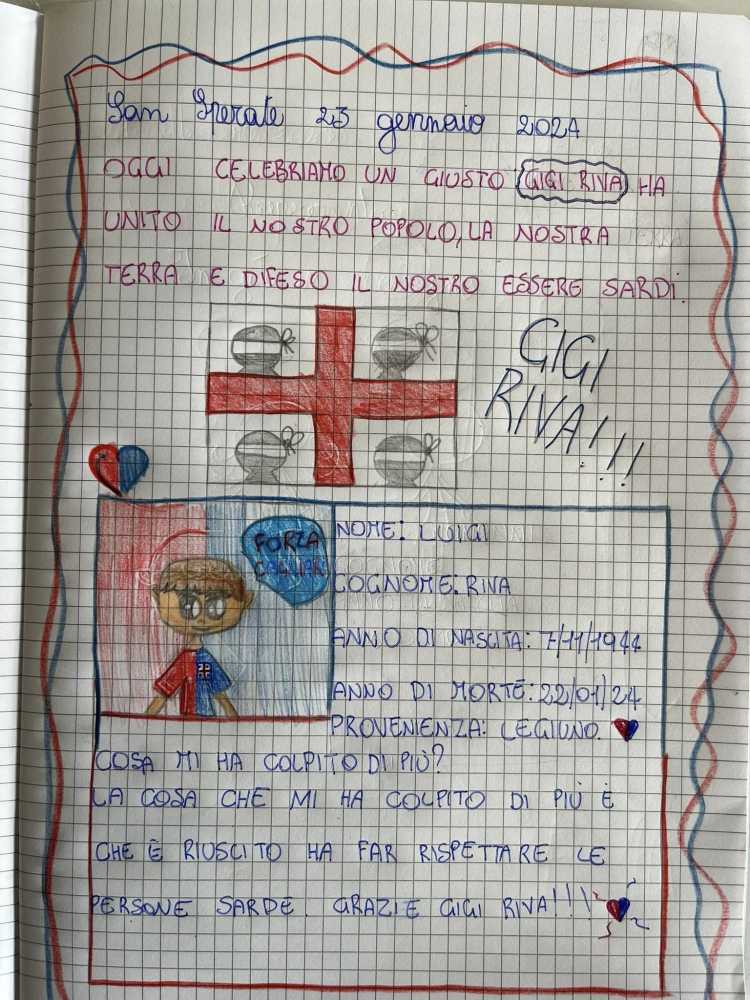 San Sperate 23 gennaio 2024
OGGI CELEBRIAMO UN GIUSTO GIGI RIVA HA
UNITO IL NOSTRO POPOLO, LA NOSTRA
TERRA E DIFESO IL NOSTRO ESSERE SARDI.
GIGI
RIVA!!!
FORZA
CAGLIARI
NOME: LUIGI
COGNOME: RIVA
ANNO DI NASCITA: 7/11/1944
ANNO DI MORTE: 22/01/24
PROVENIENZA: LEGIUNO.
COSA MI HA COLPITO DI PIÙ?
LA COSA CHE MI HA COLPITO DI PIÙ È
CHE È RIUSCITO HA FAR RISPETTARE LE
PERSONE SARDE. GRAZIE GIGI RIVA!!!